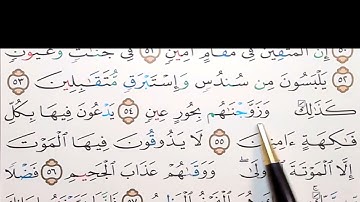 إِنَّ ٱلْمُتَّقِينَ فِى مَقَامٍ أَمِينٍ ٥١ فِى جَنَّٰتٍ وَعُيُونٍ
٥٢ يَلْبَسُونَ مِن سُندُسٍ وَإِسْتَبْرَقٍ مُّتَقَٰبِلِينَ ٥٣
كَذَٰلِكَ وَزَوَّجْنَٰهُم بِحُورٍ عِينٍ ٥٤ يَدْعُونَ فِيهَا بِكُلِّ
فَٰكِهَةٍ ءَامِنِينَ ٥٥ لَا يَذُوقُونَ فِيهَا ٱلْمَوْتَ
إِلَّا ٱلْمَوْتَةَ وَوَقَىٰهُمْ عَذَابَ ٱلْجَحِيمِ ٥٦ فَضْلًا